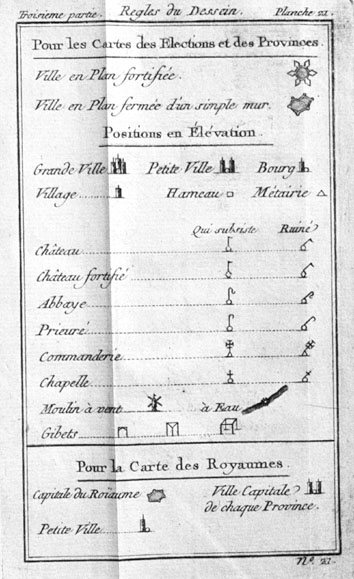 Troisieme partie. Regles du Dessein. Planche 21.
Pour les Cartes des Elections et des Provinces.
Ville en Plan fortifiée.
Ville en Plan fermée d'un simple mur.
Positions en Élévation.
Grande Ville Petite Ville Bourg
Village Hameau Métairie
Qui subsiste Ruiné
Château
Château fortifié
Abbaye
Prieuré
Commanderie
Chapelle
Moulin à vent à Eau
Gibets
Pour la Carte des Royaumes.
Capitale du Roiaume Ville Capitale
de chaque Province.
Petite Ville
Nº. 21.